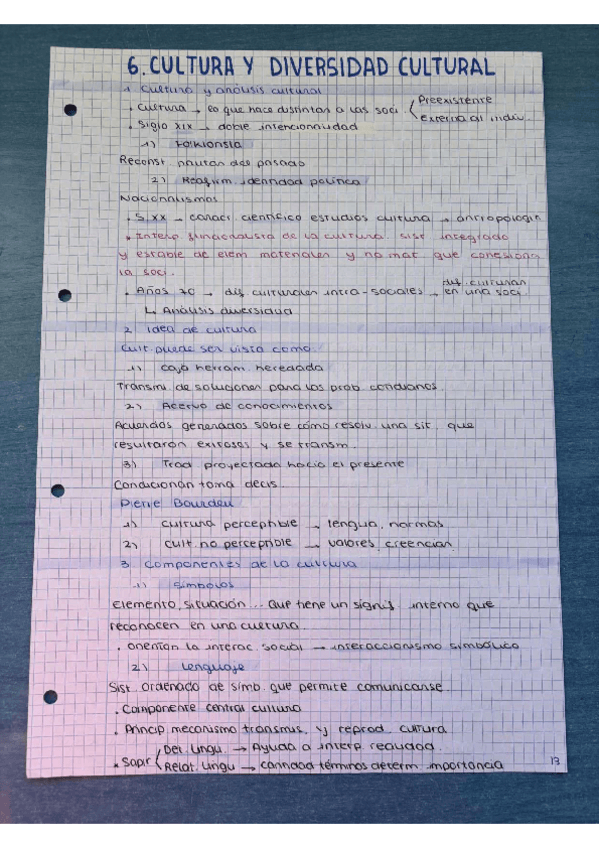 6. CULTURA Y DIVERSIDAD CULTURAL
1. Cultura y análisis cultural
• Cultura → lo que hace distintan a las soci. Preexistente
externa al indiv.
• Siglo XIX → doble intencionalidad
1) Folklorista
Reconst. pautas del pasado
2) Reafirm. identidad política
Nacionalismos
• S. XX → caract. científico estudios cultura → antropología
• Interp. funcionalista de la cultura: sist. integrado
y estable de elem. materiales y no mat. que cohesiona
la soci.
• Años 70 → dif. culturales intra-sociales → dif. culturan
en una soci.
↳ Análisis diversidad
2. Idea de cultura
Cult. puede ser vista como
1) Caja herram. heredada
Transmi. de soluciones para los prob. cotidianos
2) Acervo de conocimientos
Acuerdos generados sobre cómo resolv. una sit. que
resultaron exitosas y se transm.
3) Trad. proyectada hacia el presente
Condicionan toma decis.
Pierre Bourdeu
1) Cultura perceptible → lengua, normas
2) Cult. no perceptible → valores, creencian
3. Componentes de la cultura
1) Símbolos
Elemento, situación... que tiene un signif. interno que
reconocen en una cultura.
• Orientan la interac. social → interaccionismo simbólico
2) Lenguaje
Sist. ordenado de simb. que permite comunicarse.
• Componente central cultura
• Princip. mecanismo transmis. y reprod. cultura
• Sapir Det. lingu. → Ayuda a interp. realidad
Relat. lingu → cantidad términos determ. importancia
13